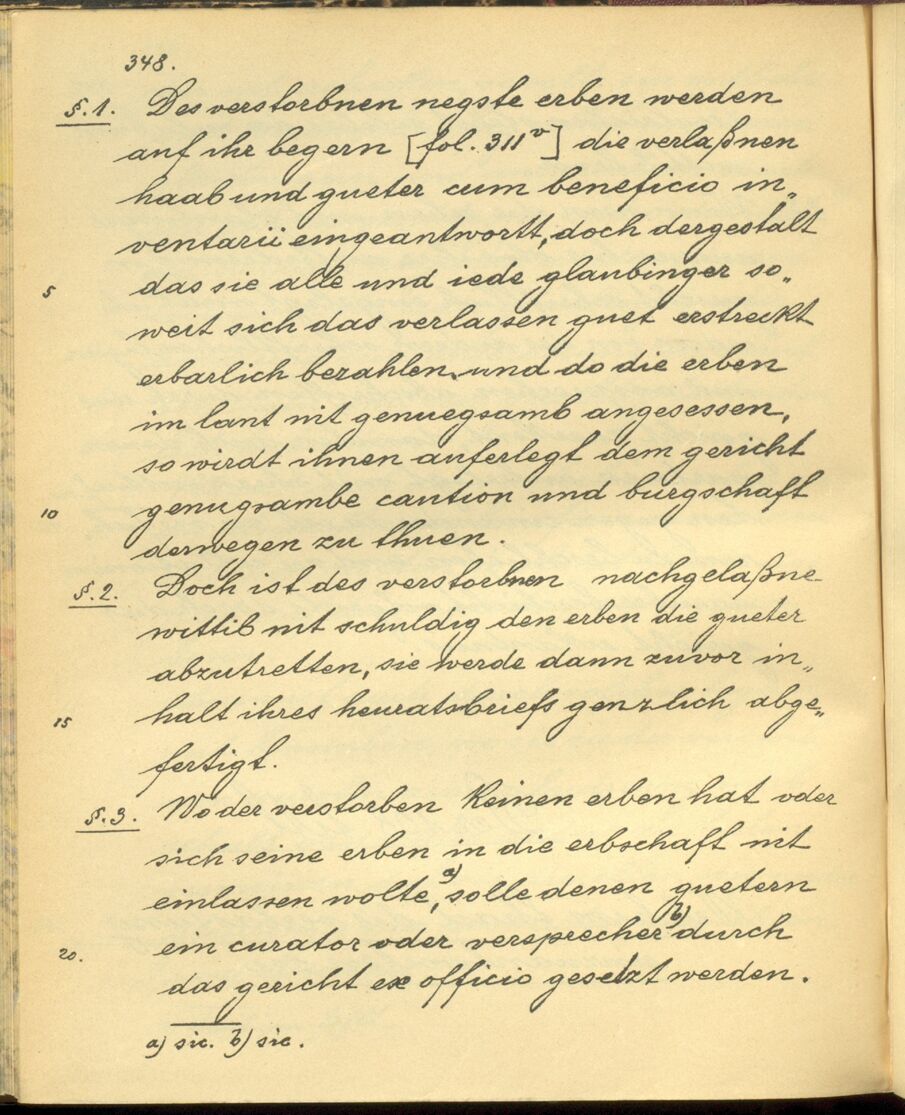 348.
§.1. Des verstorbnen negste erben werden
auf ihr begern [fol. 311v] die verlaßnen
haab und gueter cum beneficio in„
ventarii eingeantwortt, doch dergestalt
5 das sie alle und iede glaubinger so„
weit sich das verlassen guet erstreckt
erbarlich bezahlen, und do die erben
im lant nit genuegsamb angesessen,
so wirdt ihnen auferlegt dem gericht
10 genugsambe caution und burgschaft
derwegen zu thuen.
§.2. Doch ist des verstorbnen nachgelaßne
wittib nit schuldig den erben die gueter
abzutretten, sie werde dann zuvor in„
15 halt ihres heuratsbriefs genzlich abge„
fertigt.
§.3. Wo der verstorben keinen erben hat oder
sich seine erben in die erbschaft nit
einlassen wolte,a) solle denen guetern
20. ein curator oder versprecherb) durch
das gericht ex officio gesetzt werden.
a) sic. b) sic.